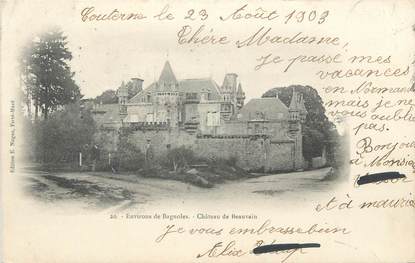 Couterne le 23 Août 1903
Chère Madame,
Je passe mes
vacances en
Normandie
mais je ne vous
oublie
pas.
Bonjour
à Monsieur
et à
Je vous embrasse bien
Alix
20. - Environs de Bagnoles. - Château de Beauvain
Edition E. Nugue, Ferté-Macé